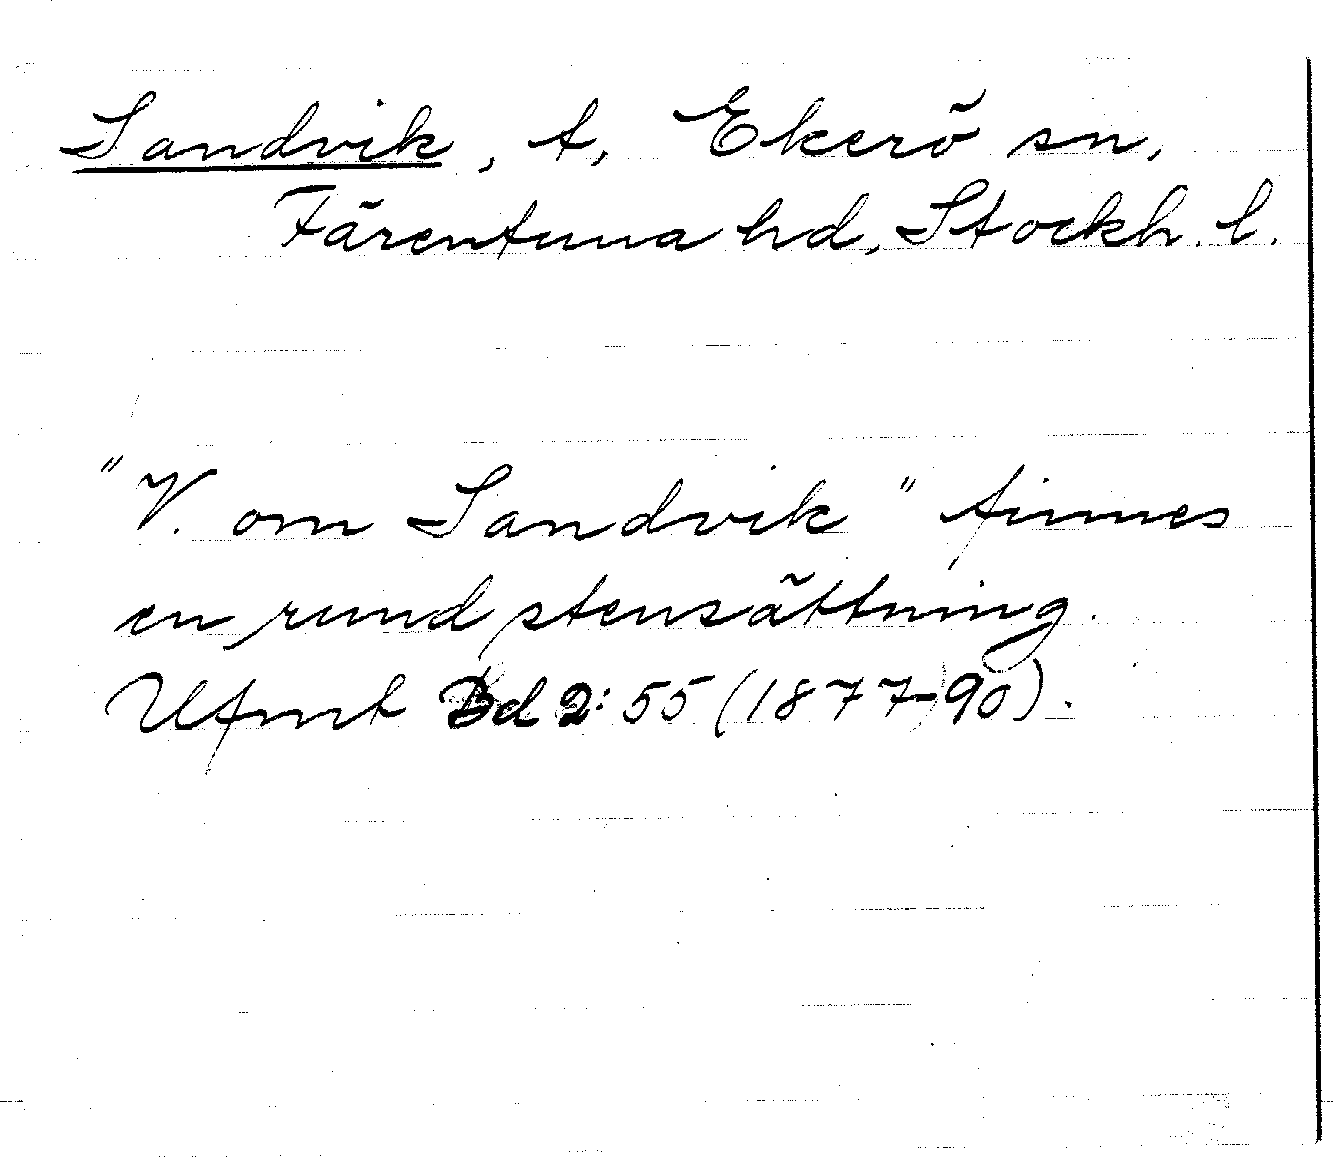 Sandvik, t, Ekerö sn,
Färentuna hd, Stockh. l.
"V. om Sandvik" finnes
en rund stensättning.
Ufmt Bd 2: 55 (1877-90).